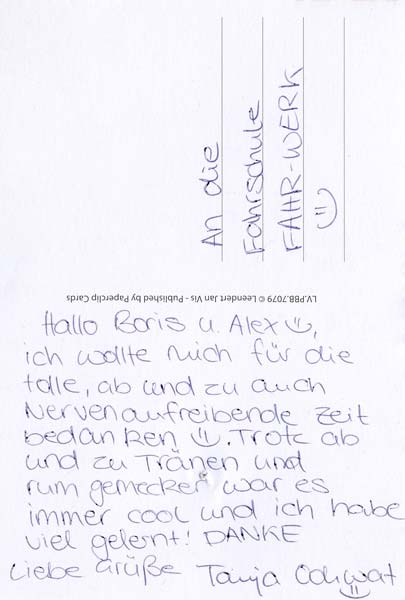 An die
Fahrschule
FAHR-WERK
LV.PBB.7079 © Leendert Jan Vis - Published by Paperclip Cards
Hallo Boris u. Alex ☺,
ich wollte mich für die
tolle, ab und zu auch
Nervenaufreibende Zeit
bedanken ☺. Trotz ab
und zu Tränen und
rum gemecker war es
immer cool und ich habe
viel gelernt! DANKE
Liebe Grüße Tanja